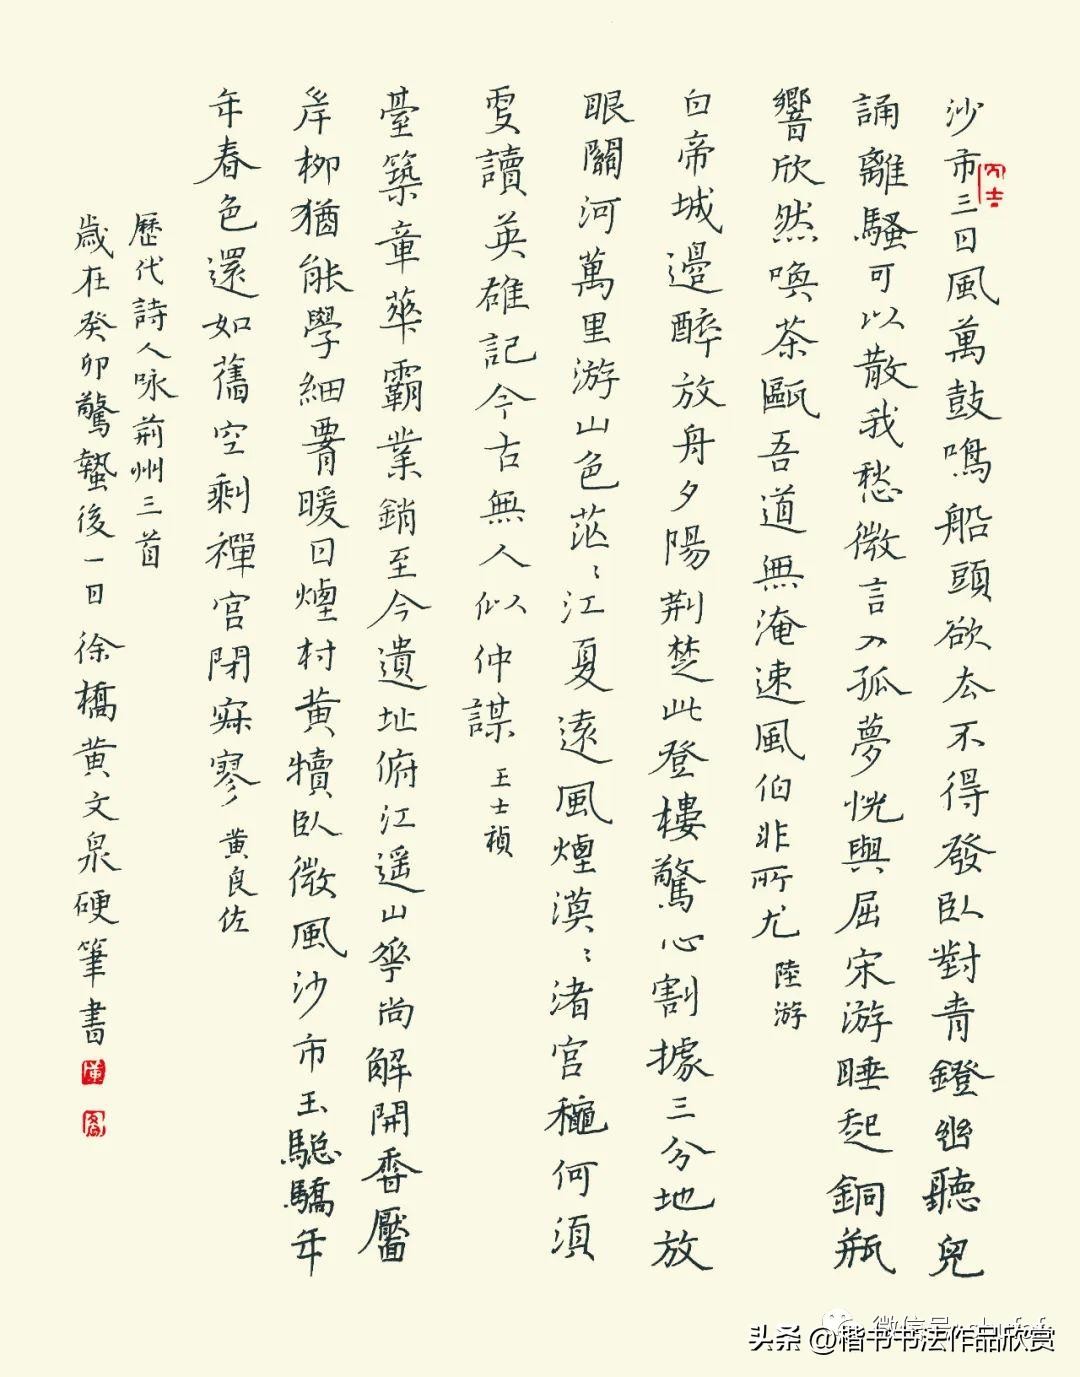 沙市三日風萬鼓鳴船頭欲去不得發臥對青鐙幽聽兒
誦離騷可以散我愁微言入孤夢恍與屈宋游睡起銅瓶
響欣然喚茶甌吾道無淹速風伯非所尤 陸游
白帝城邊醉放舟夕陽荆楚此登樓驚心割據三分地放
眼關河萬里游山色茫〻江夏遠風煙漠〻渚宮龝何須
更讀英雄記今古無人似仲謀 王士禎
臺築章華霸業銷至今遺址俯江遥山華尚解開香靨
岸柳猶能學細腰暖日煙村黄犢臥微風沙市玉驄驕年
年春色還如舊空剩禪宫閉寂寥 黄良佐
歷代詩人咏荊州三首
歲在癸卯驚蟄後一日徐橋黄文泉硬筆書
头条 @楷书书法作品欣赏